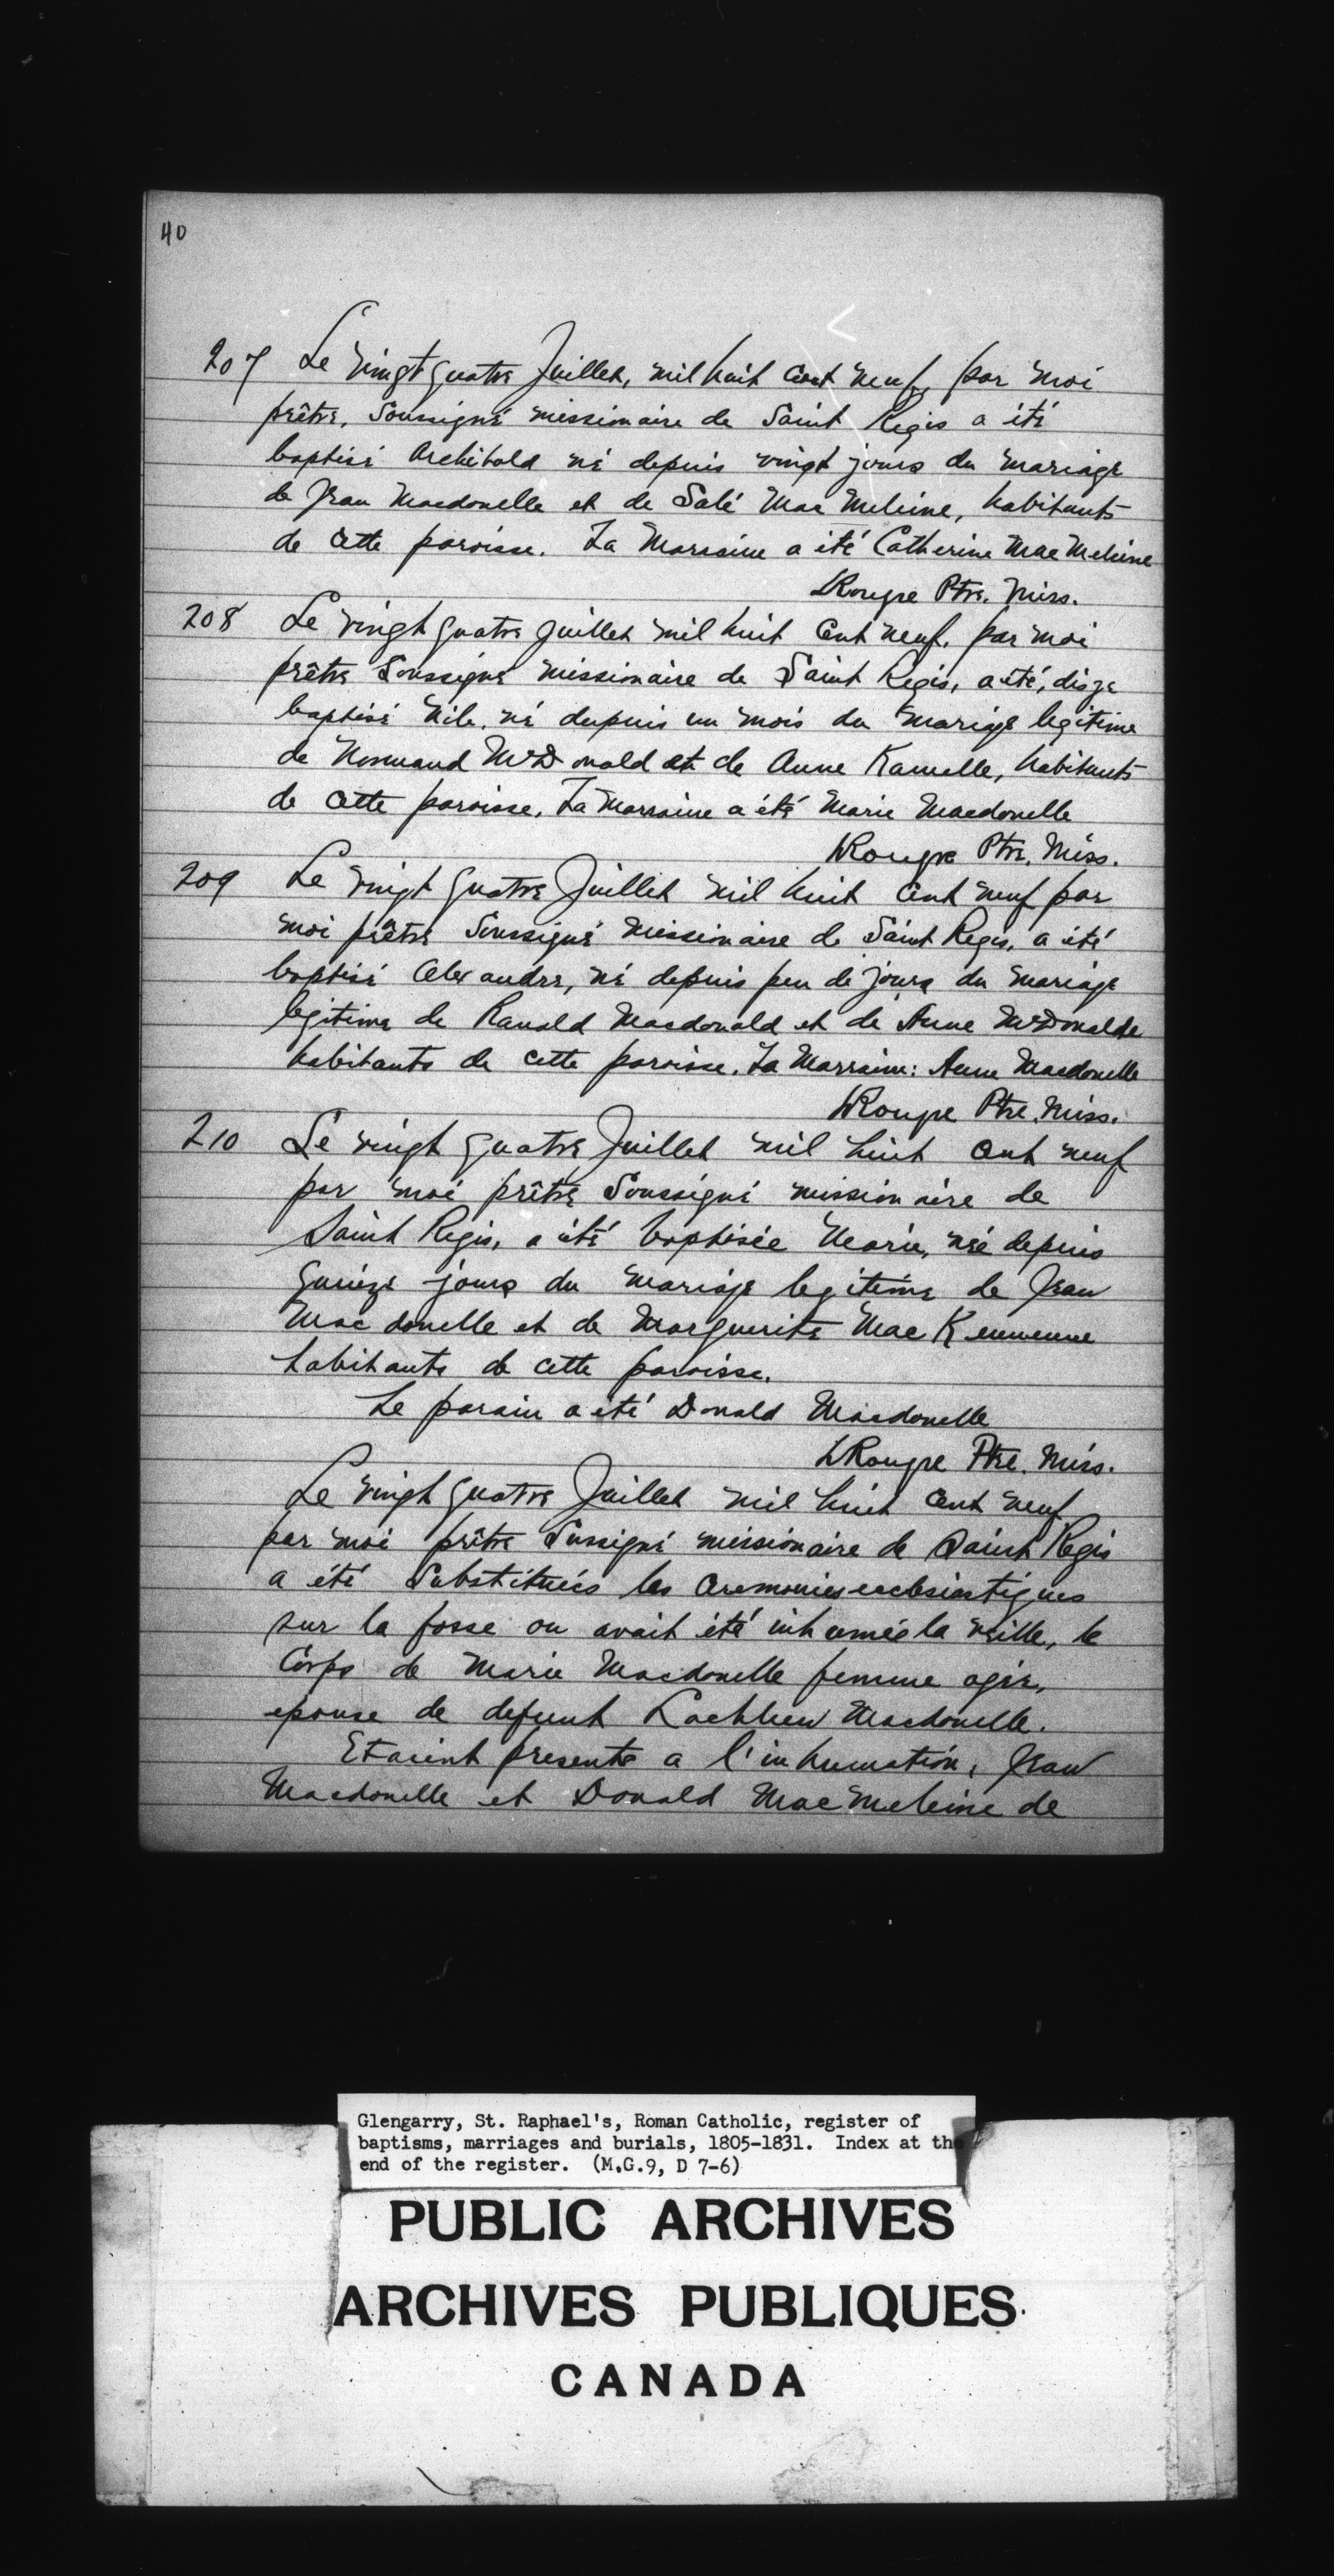 40
207 Le vingt quatre Juillet, mil huit cent neuf, par moi
prêtre, soussigné missionaire de Saint Regis a été
baptisé Archibald né depuis vingt jours du mariage
de Jean Macdonelle et de Salé Mac Meleine, habitants
de cette paroisse. La Marraine a été Catherine Mac Meleine
LRoupe Ptre. Miss.
208 Le vingt quatre Juillet mil huit cent neuf, par moi
prêtre soussigné missionaire de Saint Regis, a été, dis je
baptisé Nile, né depuis un mois du mariage legitime
de Normand McDonald et de Anne Kamelle, habitants
de cette paroisse. La Marraine a été Marie Macdonelle
LRoupe Ptre. Miss.
209 Le vingt quatre Juillet mil huit cent neuf par
moi prêtre soussigné missionaire de Saint Regis, a été
baptisé Alexandre, né depuis peu de jours du mariage
legitime de Ranald Macdonald et de Anne McDonalde
habitants de cette paroisse. La Marraine: Anne Macdonelle
LRoupe Ptre. Miss.
210 Le vingt quatre Juillet mil huit cent neuf
par moi prêtre soussigné missionaire de
Saint Regis, a été baptisée Marie, née depuis
quinze jours du mariage legitime de Jean
Macdonelle et de Marguerite Mac Kennenne
habitants de cette paroisse.
Le parain a été Donald Macdonelle
LRoupe Ptre. Miss.
Le vingt quatre Juillet mil huit cent neuf
par moi prêtre sussigné missionaire de Saint Regis
a été substituées les ceremonies ecclesiastiques
sur la fosse ou avait été inhumée la veille, le
corps de Marie Macdonelle femme agée,
epouse de defunt Lachlen Macdonelle.
Etaient presents a l'inhumation, Jean
Macdonelle et Donald Mac Meleine de
Glengarry, St. Raphael's, Roman Catholic, register of
baptisms, marriages and burials, 1805-1831. Index at the
end of the register. (M.G.9, D 7-6)
PUBLIC ARCHIVES
ARCHIVES PUBLIQUES
CANADA